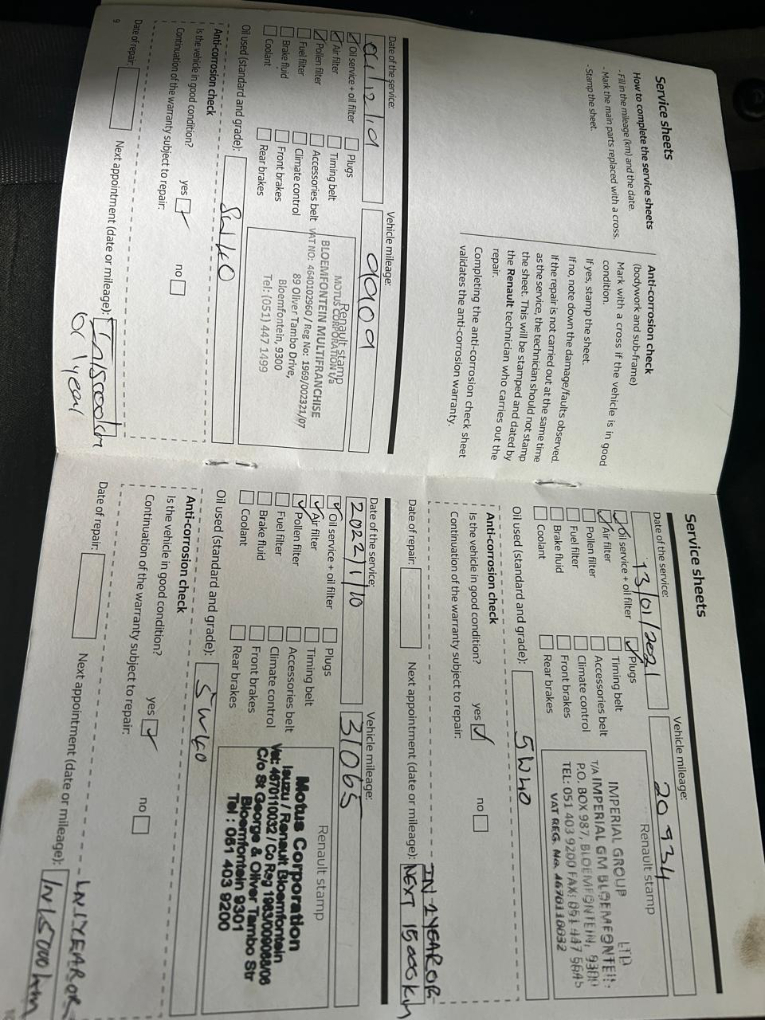 Service sheets
How to complete the service sheets
- Fill in the mileage (km) and the date.
- Mark the main parts replaced with a cross.
- Stamp the sheet.
Anti-corrosion check
(bodywork and sub-frame)
Mark with a cross if the vehicle is in good
condition.
If yes, stamp the sheet.
If no, note down the damage/faults observed.
If the repair is not carried out at the same time
as the service, the technician should not stamp
the sheet. This will be stamped and dated by
the Renault technician who carries out the
repair.
Completing the anti-corrosion check sheet
validates the anti-corrosion warranty.
Date of the service: Vehicle mileage:
04/12/19 9909
Oil service + oil filter Plugs
Air filter Timing belt
Pollen filter Accessories belt
Fuel filter Climate control
Brake fluid Front brakes
Coolant Rear brakes
Renault stamp
MOTUS CORPORATION t/a
BLOEMFONTEIN MULTIFRANCHISE
VAT NO: 4640102960 / Reg No: 1969/002321/07
89 Oliver Tambo Drive,
Bloemfontein, 9300
Tel: (051) 447 1499
Oil used (standard and grade): 5W40
Anti-corrosion check
Is the vehicle in good condition? yes no
Continuation of the warranty subject to repair:
Date of repair: Next appointment (date or mileage): In 15000km
or 1 year
9
Service sheets
Date of the service: Vehicle mileage:
13/01/2021 20934
Oil service + oil filter Plugs
Air filter Timing belt
Pollen filter Accessories belt
Fuel filter Climate control
Brake fluid Front brakes
Coolant Rear brakes
Renault stamp
IMPERIAL GROUP LTD
T/A IMPERIAL GM BLOEMFONTEIN
P.O. BOX 987, BLOEMFONTEIN, 9300
TEL: 051 403 9200 FAX: 051 447 5645
VAT REG. No. 4670110032
Oil used (standard and grade): 5W40
Anti-corrosion check
Is the vehicle in good condition? yes no
Continuation of the warranty subject to repair:
Date of repair: Next appointment (date or mileage): IN 1 YEAR OR
NEXT 15000KM
Date of the service: Vehicle mileage:
2022/1/10 31065
Oil service + oil filter Plugs
Air filter Timing belt
Pollen filter Accessories belt
Fuel filter Climate control
Brake fluid Front brakes
Coolant Rear brakes
Renault stamp
Motus Corporation
Isuzu / Renault Bloemfontein
Vat: 4670110032 / Co Reg 1983/009088/06
C/o St George & Oliver Tambo Str
Bloemfontein 9301
Tel : 051 403 9200
Oil used (standard and grade): 5W40
Anti-corrosion check
Is the vehicle in good condition? yes no
Continuation of the warranty subject to repair:
Date of repair: Next appointment (date or mileage): IN 1 YEAR OR
IN 15000km